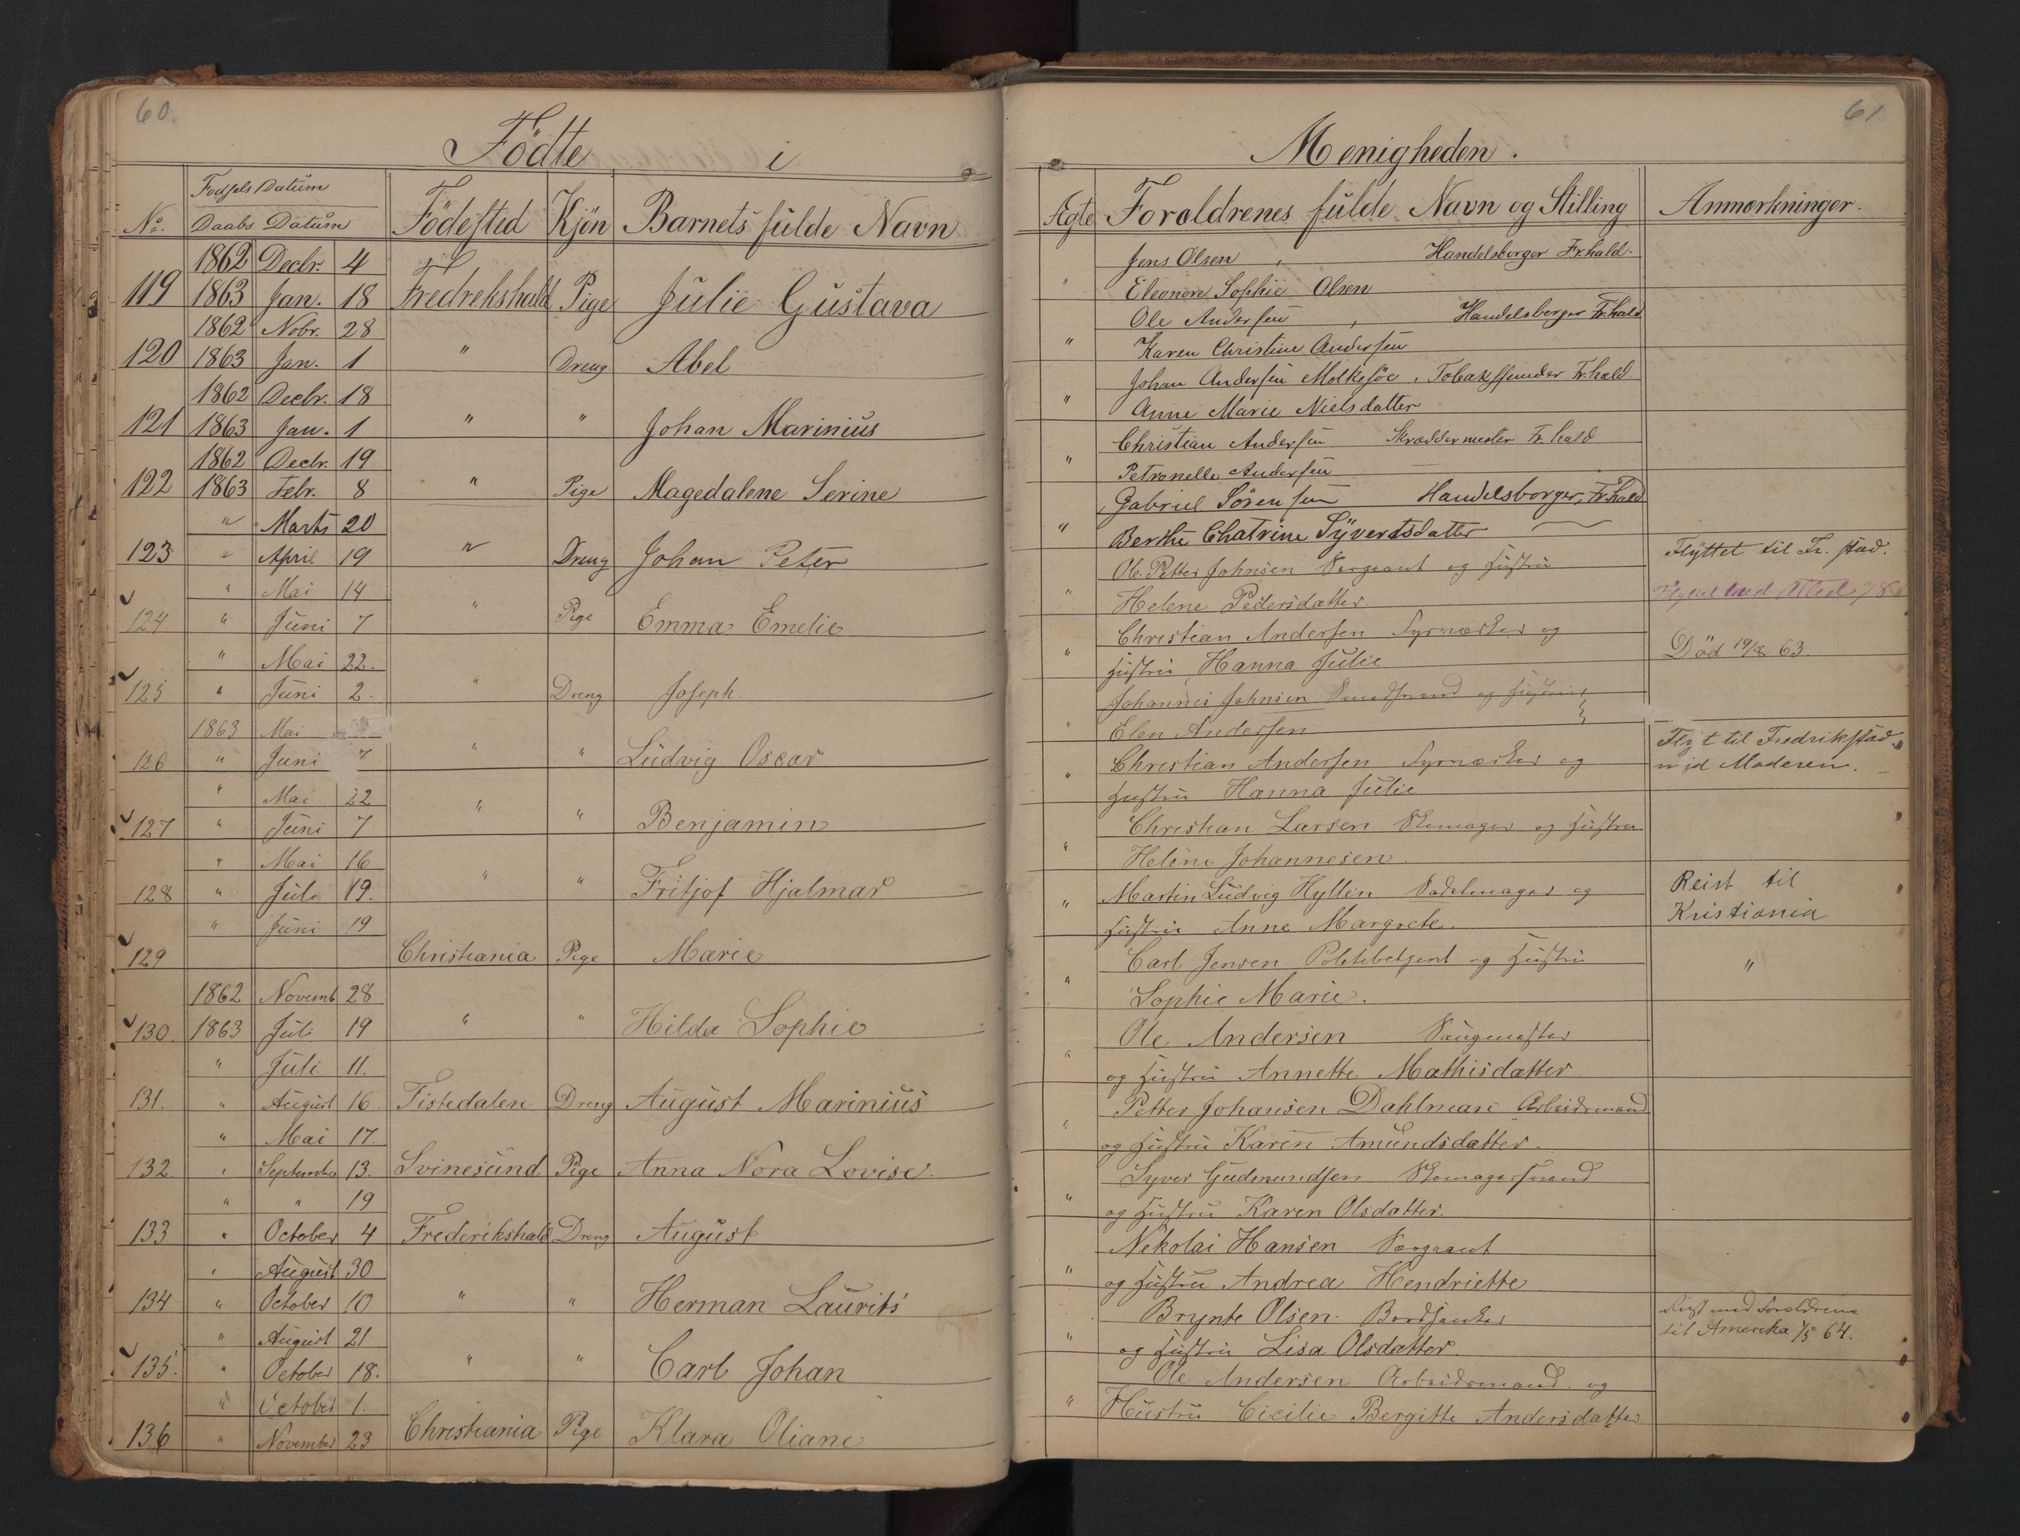 60.
Födte i
No. Fodsels Datum Daabs Datum Födested Kjön Barnets fulde Navn
1862 Decbr. 4
119 1863 Jan. 18 Fredrekshald Pige Julie Gustava
1862 Nobr. 28
120 1863 Jan. 1 " Dreng Abel
1862 Decbr. 18
121 1863 Jan. 1 " " Johan Marinius
1862 Decbr. 19
122 1863 Febr. 8 " Pige Magedalene Serine
" Marts 20
123 " April 19 " Dreng Johan Peter
" Mai 14
124 " Juni 7 " Pige Emma Emelie
" Mai 22.
125 " Juni 2. " Dreng Joseph
1863 Mai
126 " Juni 7 " " Ludvig Oscar
" Mai 22
127 " Juni 7 " " Benjamin
" Mai 16
128 " Juli 19. " " Fritjof Hjalmar
" Juni 19
129 Christiania Pige Marie
1862 Novemb 28
130. 1863 Juli 19 " " Hilda Sophie
" Juli 11.
131. " August 16. Tistedalen Dreng August Marinius
" Mai 17.
132 " Septembr 13. Svinesund Pige Anna Nora Lovise.
" " 19
133 " October 4 Frederikshald Dreng August
" August 30
134 " October 10 " " Herman Laurits
" August 21
135. " October 18. " " Carl Johan
" October 1.
136 " November 23 Christiania Pige Klara Oliane
61
Menigheden.
Ægte Foraldrenes fulde Navn og Stilling Anmærkninger.
Jens Olsen, Handelsborger Fr.hald.
" Eleonore Sophie Olsen
Ole Andersen, Handelsborger Fr.hald
" Karen Christine Andersen
Johan Andersen, Tobaksspinder Fr.hald
" Anne Marie Nielsdatter
Christian Andersen Skræddermester Fr.hald
" Petronelle Andersen
Gabriel Sörensen Handelsborger, Fr.hald
" Berthe Chatrine Syvertsdatter
Ole Petter Johnsen Sergeant og Hustru Flyttet til Fr. stad.
" Helene Pedersdatter
Christian Andersen og
" Hustru Hanna Julie Död 19/8 63.
Johannes Johnsen og Hustru
" Elen Andersen
Christian Andersen og Flyt til Fredrikstad
" Hustru Hanna Julie mid Moderen.
Christian Larsen Skomager og Hustru
" Heline Johannesen.
Martin Ludvig Hyllin Sadelmager og Reist til
" Hustru Anne Margrete. Kristiania
Carl Jensen Politibetjent og Hustru "
" Sophie Marie.
Ole Andersen Saugmester
" og Hustru Annette Mathisdatter
Petter Johansen Dahlman Arbeidsmand
" og Hustru Karen Amundsdatter.
Syver Gudmundsen
" og Hustru Karen Olsdatter.
Nekolai Hansen Sergeant
" og Hustru Andrea Hendriette
Brynte Olsen. med Foraldrene
" og Hustru Lisa Olsdatter. til Amerika 1/5 64.
Ole Andersen Arbeidsmand og
" Hustru Cicilie Bergitte Andersdatter